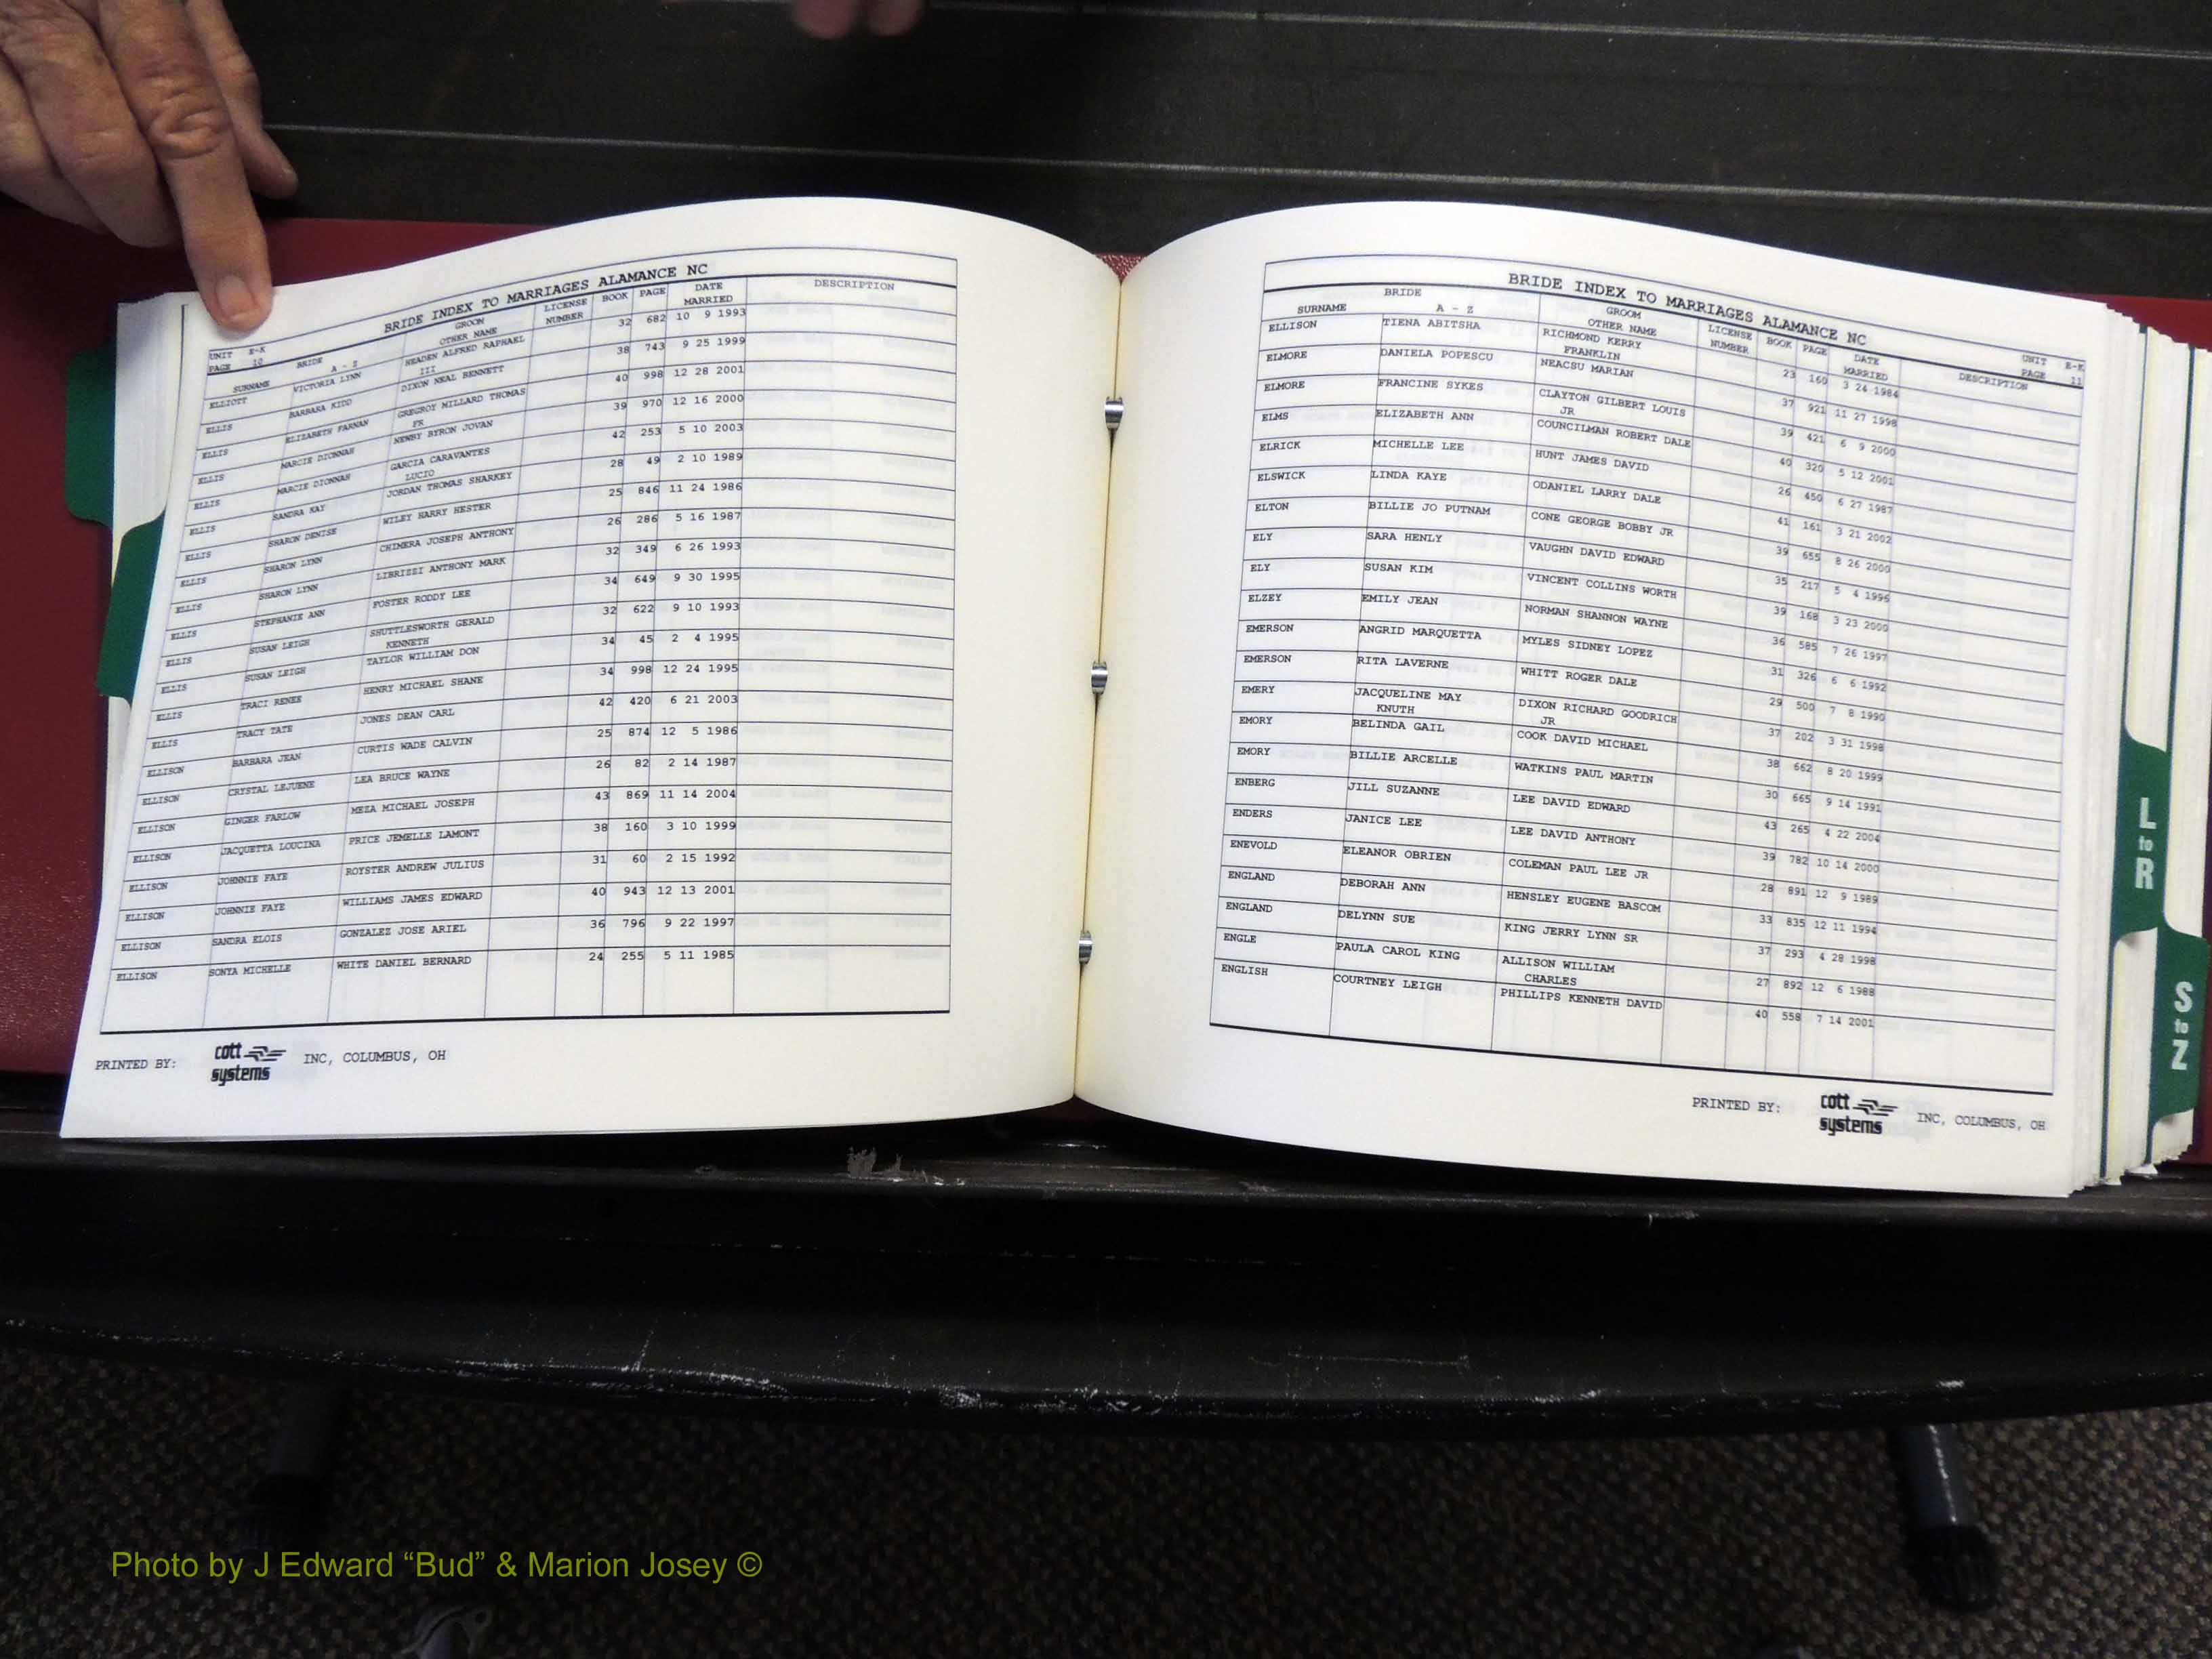 BRIDE INDEX TO MARRIAGES ALAMANCE NC
UNIT E-K
PAGE 10
SURNAME BRIDE A - Z GROOM OTHER NAME LICENSE NUMBER BOOK PAGE DATE MARRIED DESCRIPTION
ELLIOTT VICTORIA LYNN HEADEN ALFRED RAPHAEL 32 682 10 9 1993
III
ELLIS BARBARA KIDD DIXON NEAL BENNETT 38 743 9 25 1999
ELLIS ELIZABETH FARNAN GREGROY MILLARD THOMAS 40 998 12 28 2001
FR
ELLIS MARCIE DIONNAH NEWBY BYRON JOVAN 39 970 12 16 2000
ELLIS MARCIE DIONNAH GARCIA CARAVANTES 42 253 5 10 2003
LUCIO
ELLIS SANDRA KAY JORDAN THOMAS SHARKEY 28 49 2 10 1989
ELLIS SHARON DENISE WILEY HARRY HESTER 25 846 11 24 1986
ELLIS SHARON LYNN CHIMERA JOSEPH ANTHONY 26 286 5 16 1987
ELLIS SHARON LYNN LIBRIZZI ANTHONY MARK 32 349 6 26 1993
ELLIS STEPHANIE ANN FOSTER RODDY LEE 34 649 9 30 1995
ELLIS SUSAN LEIGH SHUTTLESWORTH GERALD 32 622 9 10 1993
KENNETH
ELLIS SUSAN LEIGH TAYLOR WILLIAM DON 34 45 2 4 1995
ELLIS TRACI RENEE HENRY MICHAEL SHANE 34 998 12 24 1995
ELLIS TRACY TATE JONES DEAN CARL 42 420 6 21 2003
ELLISON BARBARA JEAN CURTIS WADE CALVIN 25 874 12 5 1986
ELLISON CRYSTAL LEJUENE LEA BRUCE WAYNE 26 82 2 14 1987
ELLISON GINGER FARLOW MEZA MICHAEL JOSEPH 43 869 11 14 2004
ELLISON JACQUETTA LOUCINA PRICE JEMELLE LAMONT 38 160 3 10 1999
ELLISON JOHNNIE FAYE ROYSTER ANDREW JULIUS 31 60 2 15 1992
ELLISON JOHNNIE FAYE WILLIAMS JAMES EDWARD 40 943 12 13 2001
ELLISON SANDRA ELOIS GONZALEZ JOSE ARIEL 36 796 9 22 1997
ELLISON SONYA MICHELLE WHITE DANIEL BERNARD 24 255 5 11 1985
PRINTED BY: cott systems INC, COLUMBUS, OH
BRIDE INDEX TO MARRIAGES ALAMANCE NC
UNIT E-K
PAGE 11
SURNAME BRIDE A - Z GROOM OTHER NAME LICENSE NUMBER BOOK PAGE DATE MARRIED DESCRIPTION
ELLISON TIENA ABITSHA RICHMOND KERRY 23 160 3 24 1984
FRANKLIN
ELMORE DANIELA POPESCU NEACSU MARIAN 37 921 11 27 1998
ELMORE FRANCINE SYKES CLAYTON GILBERT LOUIS 39 421 6 9 2000
JR
ELMS ELIZABETH ANN COUNCILMAN ROBERT DALE 40 320 5 12 2001
ELRICK MICHELLE LEE HUNT JAMES DAVID 26 450 6 27 1987
ELSWICK LINDA KAYE ODANIEL LARRY DALE 41 161 3 21 2002
ELTON BILLIE JO PUTNAM CONE GEORGE BOBBY JR 39 655 8 26 2000
ELY SARA HENLY VAUGHN DAVID EDWARD 35 217 5 4 1996
ELY SUSAN KIM VINCENT COLLINS WORTH 39 168 3 23 2000
ELZEY EMILY JEAN NORMAN SHANNON WAYNE 36 585 7 26 1997
EMERSON ANGRID MARQUETTA MYLES SIDNEY LOPEZ 31 326 6 6 1992
EMERSON RITA LAVERNE WHITT ROGER DALE 29 500 7 8 1990
EMERY JACQUELINE MAY DIXON RICHARD GOODRICH 37 202 3 31 1998
KNUTH JR
EMORY BELINDA GAIL COOK DAVID MICHAEL 38 662 8 20 1999
EMORY BILLIE ARCELLE WATKINS PAUL MARTIN 30 665 9 14 1991
ENBERG JILL SUZANNE LEE DAVID EDWARD 43 265 4 22 2004
ENDERS JANICE LEE LEE DAVID ANTHONY 39 782 10 14 2000
ENEVOLD ELEANOR OBRIEN COLEMAN PAUL LEE JR 28 891 12 9 1989
ENGLAND DEBORAH ANN HENSLEY EUGENE BASCOM 33 835 12 11 1994
ENGLAND DELYNN SUE KING JERRY LYNN SR 37 293 4 28 1998
ENGLE PAULA CAROL KING ALLISON WILLIAM 27 892 12 6 1988
CHARLES
ENGLISH COURTNEY LEIGH PHILLIPS KENNETH DAVID 40 558 7 14 2001
PRINTED BY: cott systems INC, COLUMBUS, OH
L to R
S to Z
Photo by J Edward “Bud” & Marion Josey ©